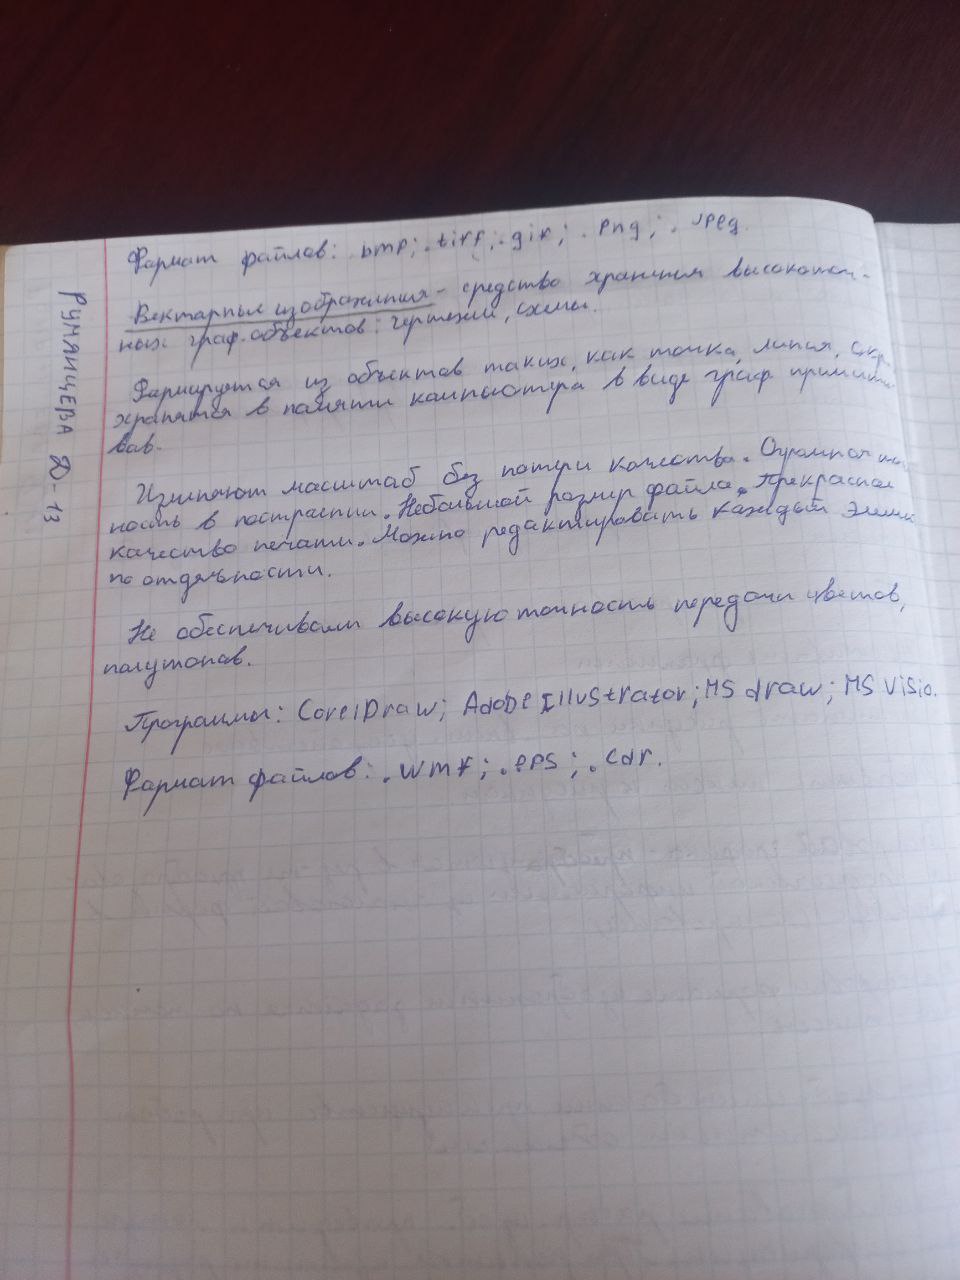 Формат файлов: .bmp; .tiff; .gif; .png; .jpeg.
Векторные изображения - средство хранения высокоточ-
ных граф. объектов: чертежи, схемы.
Формируется из объектов таких, как точка, линия, окр
хранятся в памяти компьютера в виде граф примити
вов.
Изменяют масштаб без потери качества. Огромная точ
ность в построении. Небольшой размер файла. Прекрасное
качество печати. Можно редактировать каждый элем
по отдельности.
Не обеспечивают высокую точность передачи цветов,
полутонов.
Программы: CorelDraw; Adobe Illustrator; MS draw; MS Visio.
Формат файлов: .wmf; .eps; .cdr.
РУМЯНЦЕВА Д-13